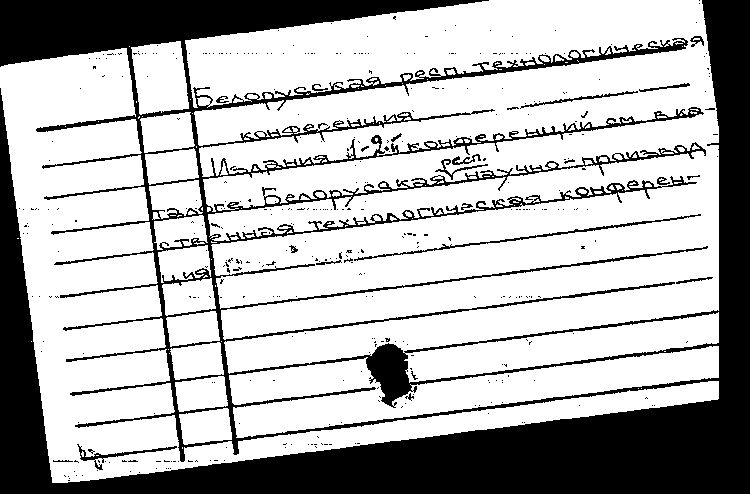 Белорусская респ. технологическая
конференция.
Издания 1-2й конференций см. в ка
талоге: Белорусская респ. научно-производ-
ственная технологическая конферен-
ция